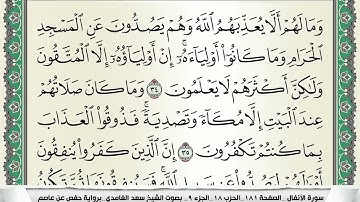 وَمَا لَهُمْ أَلَّا يُعَذِّبَهُمُ ٱللَّهُ وَهُمْ يَصُدُّونَ عَنِ ٱلْمَسْجِدِ
ٱلْحَرَامِ وَمَا كَانُوٓا۟ أَوْلِيَآءَهُۥٓ ۚ إِنْ أَوْلِيَآؤُهُۥٓ إِلَّا ٱلْمُتَّقُونَ
وَلَـٰكِنَّ أَكْثَرَهُمْ لَا يَعْلَمُونَ ٣٤ وَمَا كَانَ صَلَاتُهُمْ
عِندَ ٱلْبَيْتِ إِلَّا مُكَآءً وَتَصْدِيَةً ۚ فَذُوقُوا۟ ٱلْعَذَابَ
بِمَا كُنتُمْ تَكْفُرُونَ ٣٥ إِنَّ ٱلَّذِينَ كَفَرُوا۟ يُنفِقُونَ
سورة الأنفال _ الصفحة ١٨١ _ الحزب ١٨ _ الجزء ٩ _ بصوت الشيخ سعد الغامدي _ برواية حفص عن عاصم